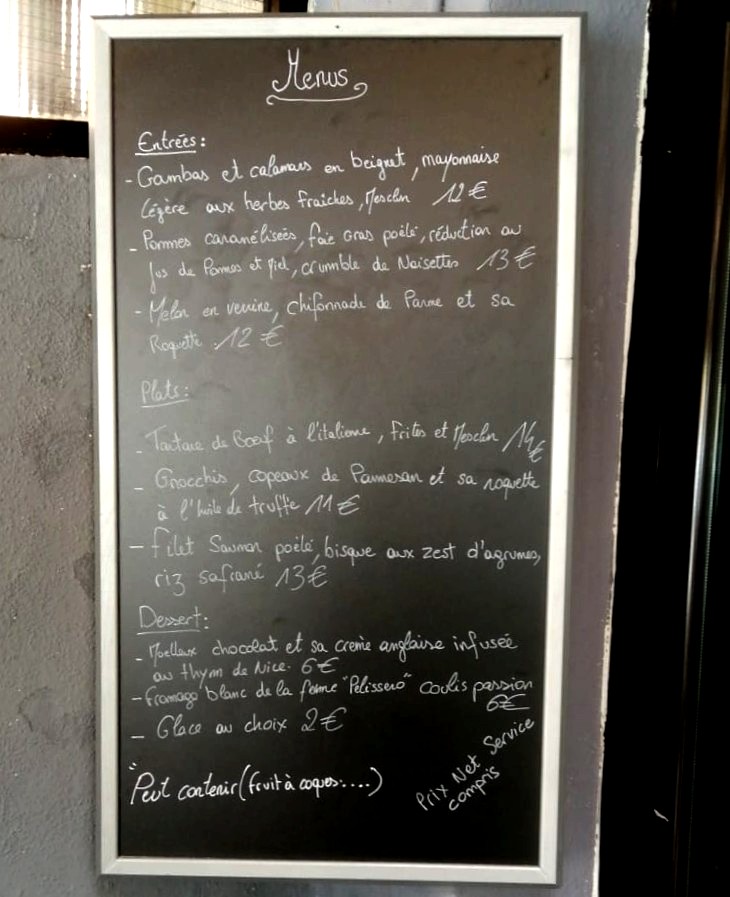 Menus
Entrées :
- Gambas et calamars en beignet, mayonnaise
légère aux herbes fraiches, Mesclun 12€
- Pommes caramélisées, foie Gras poêlé, réduction au
Jus de Pommes et Miel, crumble de Noisettes 13€
- Melon en verrine, chifonnade de Parme et sa
Roquette . 12€
Plats :
- Tartare de Boeuf à l'italienne, frites et Mesclun 14€
- Gnocchis, copeaux de Parmesan et sa roquette
à l'huile de truffe 11€
- filet Saumon poêlé, bisque aux zest d'agrumes,
riz safrané 13€
Dessert :
- Moelleux chocolat et sa creme anglaise infusée
au thym de Nice. 6€
- fromage blanc de la ferme "Pelissero" coulis passion
6€
- Glace au choix 2€
"Peut contenir (fruit à coques : ....)
Prix Net Service
compris